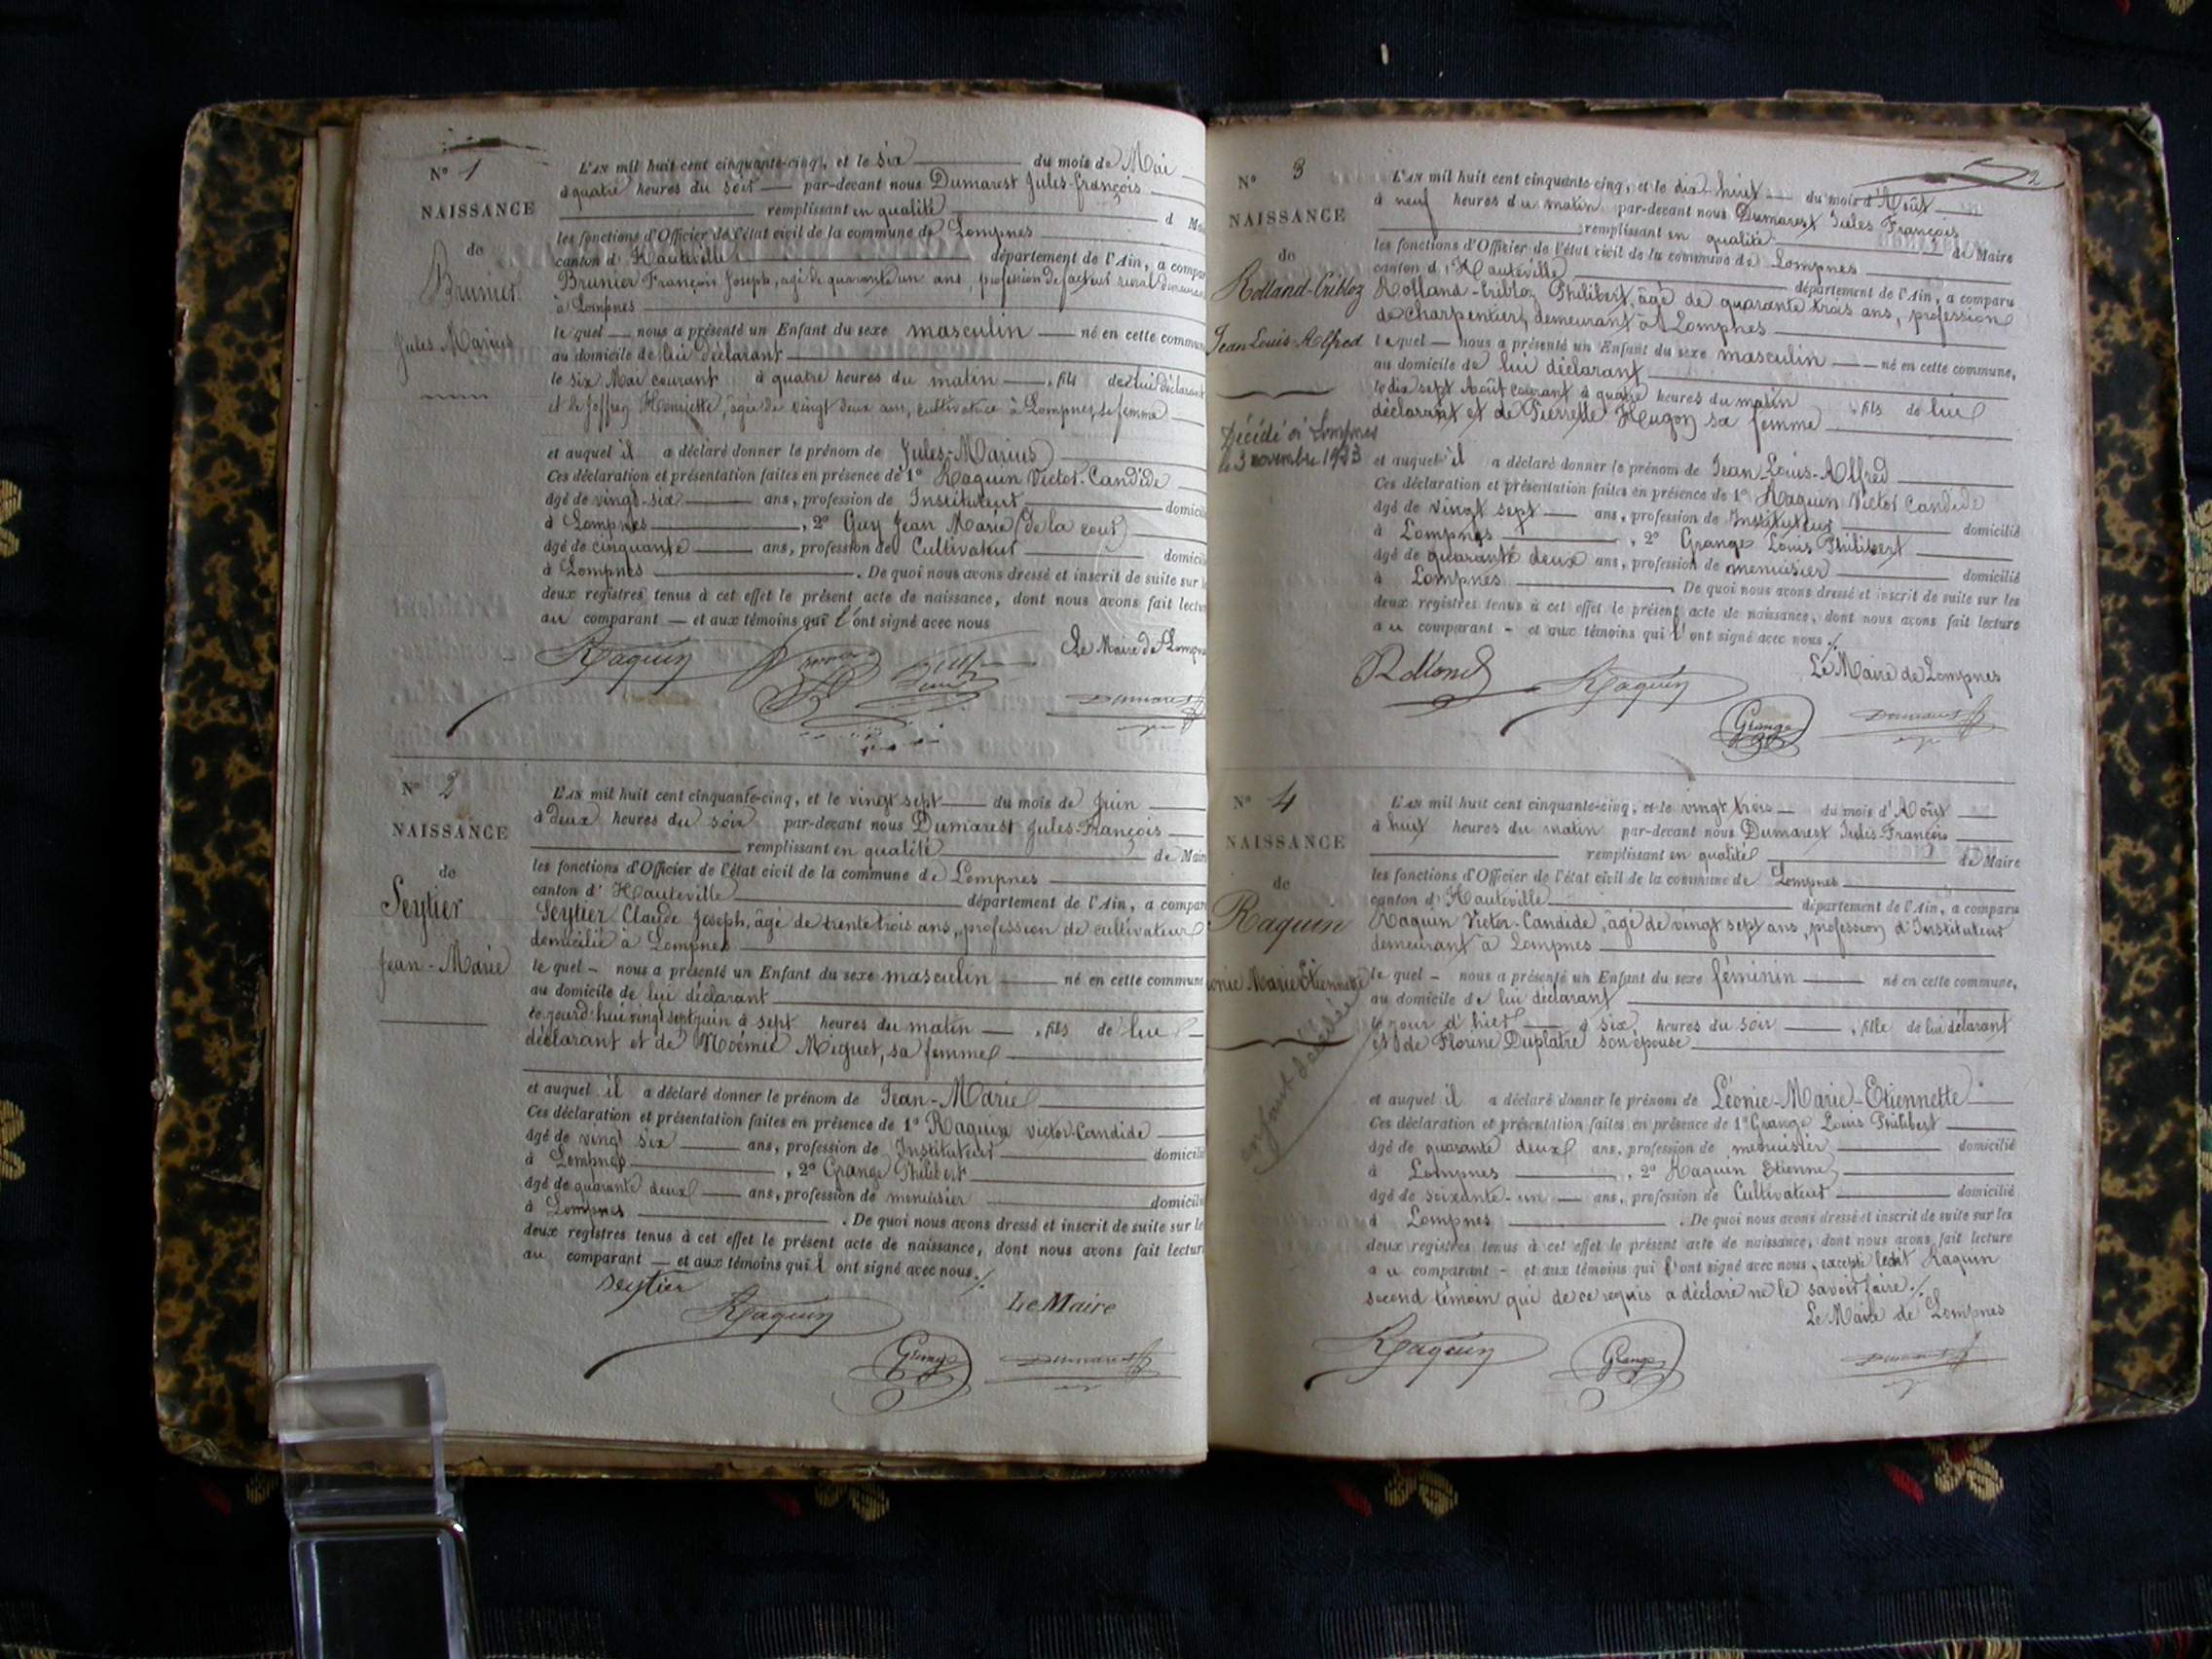 N° 1
NAISSANCE
de
Brunier
Jules Marius
L'AN mil huit cent cinquante-cinq, et le six du mois de Mai
à quatre heures du soir par-devant nous Dumarest Jules-françois
remplissant en qualité d
les fonctions d'Officier de l'état civil de la commune de Lompnes
canton d'Hauteville département de l'Ain, a compar
Brunier François Joseph, agé de quarante un ans, profession de facteur rural
à Lompnes
le quel nous a présenté un Enfant du sexe masculin né en cette commune
au domicile de lui déclarant
le six Mai courant à quatre heures du matin, fils de lui déclarant
et de Joffrey Henriette, âgée de vingt deux ans, cultivatrice à Lompnes, sa femme
et auquel il a déclaré donner le prénom de Jules-Marius
Ces déclaration et présentation faites en présence de 1° Raquin Victor-Candide
âgé de vingt-six ans, profession de Instituteur domicili
à Lompnes, 2° Guy Jean Marie (de la cour)
âgé de cinquante ans, profession de Cultivateur domicili
à Lompnes. De quoi nous avons dressé et inscrit de suite sur
deux registres tenus à cet effet le présent acte de naissance, dont nous avons fait lectur
au comparant — et aux témoins qui l'ont signé avec nous
Le Maire de Lompn
Raquin
Dumarest
N° 2
NAISSANCE
de
Seytier
Jean-Marie
L'AN mil huit cent cinquante-cinq, et le vingt sept du mois de Juin
à deux heures du soir par-devant nous Dumarest Jules-François
remplissant en qualité de Maire
les fonctions d'Officier de l'état civil de la commune de Lompnes
canton d'Hauteville département de l'Ain, a compar
Seytier Claude Joseph, âgé de trente trois ans, profession de cultivateur
domicilié à Lompnes
le quel – nous a présenté un Enfant du sexe masculin né en cette commune
au domicile de lui déclarant
ce jourd'hui vingt sept juin à sept heures du matin, fils de lui
déclarant et de Noémie Miguet, sa femme
et auquel il a déclaré donner le prénom de Jean-Marie
Ces déclaration et présentation faites en présence de 1° Raquin victor-Candide
âgé de vingt six ans, profession de Instituteur domicili
à Lompnes, 2° Grange Philibert
âgé de quarante deux ans, profession de menuisier domicili
à Lompnes. De quoi nous avons dressé et inscrit de suite sur le
deux registres tenus à cet effet le présent acte de naissance, dont nous avons fait lectur
au comparant — et aux témoins qui l ont signé avec nous ./.
Seytier
Raquin
Le Maire
Grange
Dumarest
2
N° 3
NAISSANCE
de
Rolland-Cribloz
Jean Louis-Alfred
Décédé à Lompnes
le 3 novembre 1933
L'AN mil huit cent cinquante cinq, et le dix-huit du mois d'Août
à neuf heures du matin par-devant nous Dumarest Jules François
remplissant en qualité de Maire
les fonctions d'Officier de l'état civil de la commune de Lompnes
canton d'Hauteville département de l'Ain, a comparu
Rolland-Cribloz Philibert, âgé de quarante trois ans, profession
de charpentier, demeurant à Lompnes
le quel — nous a présenté un Enfant du sexe masculin né en cette commune,
au domicile de lui déclarant
le dix sept Août courant à quatre heures du matin, fils de lui
déclarant et de Pierrette Hugon sa femme
et auquel il a déclaré donner le prénom de Jean-Louis-Alfred
Ces déclaration et présentation faites en présence de 1° Raquin Victor Candide
âgé de vingt sept ans, profession de Instituteur domicilié
à Lompnes, 2° Grange Louis Philibert
âgé de quarante deux ans, profession de menuisier domicilié
à Lompnes. De quoi nous avons dressé et inscrit de suite sur les
deux registres tenus à cet effet le présent acte de naissance, dont nous avons fait lecture
au comparant – et aux témoins qui l'ont signé avec nous ./.
Le Maire de Lompnes
Rolland
Raquin
Grange
Dumarest
N° 4
NAISSANCE
de
Raquin
onie Marie Etiennette
enfant décédée
L'AN mil huit cent cinquante-cinq, et le vingt trois du mois d'Août
à huit heures du matin par-devant nous Dumarest Jules-François
remplissant en qualité de Maire
les fonctions d'Officier de l'état civil de la commune de Lompnes
canton d'Hauteville département de l'Ain, a comparu
Raquin Victor-Candide, âgé de vingt sept ans, profession d'Instituteur
demeurant à Lompnes
le quel – nous a présenté un Enfant du sexe féminin né en cette commune,
au domicile de lui déclarant
le jour d'hier à six heures du soir, fille de lui déclarant
et de Florine Duplatre son épouse
et auquel il a déclaré donner le prénom de Léonie-Marie-Etiennette
Ces déclaration et présentation faites en présence de 1° Grange Louis Philibert
âgé de quarante deux ans, profession de menuisier domicilié
à Lompnes, 2° Raquin Etienne
âgé de soixante-un ans, profession de Cultivateur domicilié
à Lompnes. De quoi nous avons dressé et inscrit de suite sur les
deux registres tenus à cet effet le présent acte de naissance, dont nous avons fait lecture
au comparant – et aux témoins qui l'ont signé avec nous, excepté ledit Raquin
second témoin qui de ce requis a déclaré ne le savoir faire ./.
Le Maire de Lompnes
Raquin
Grange
Dumarest